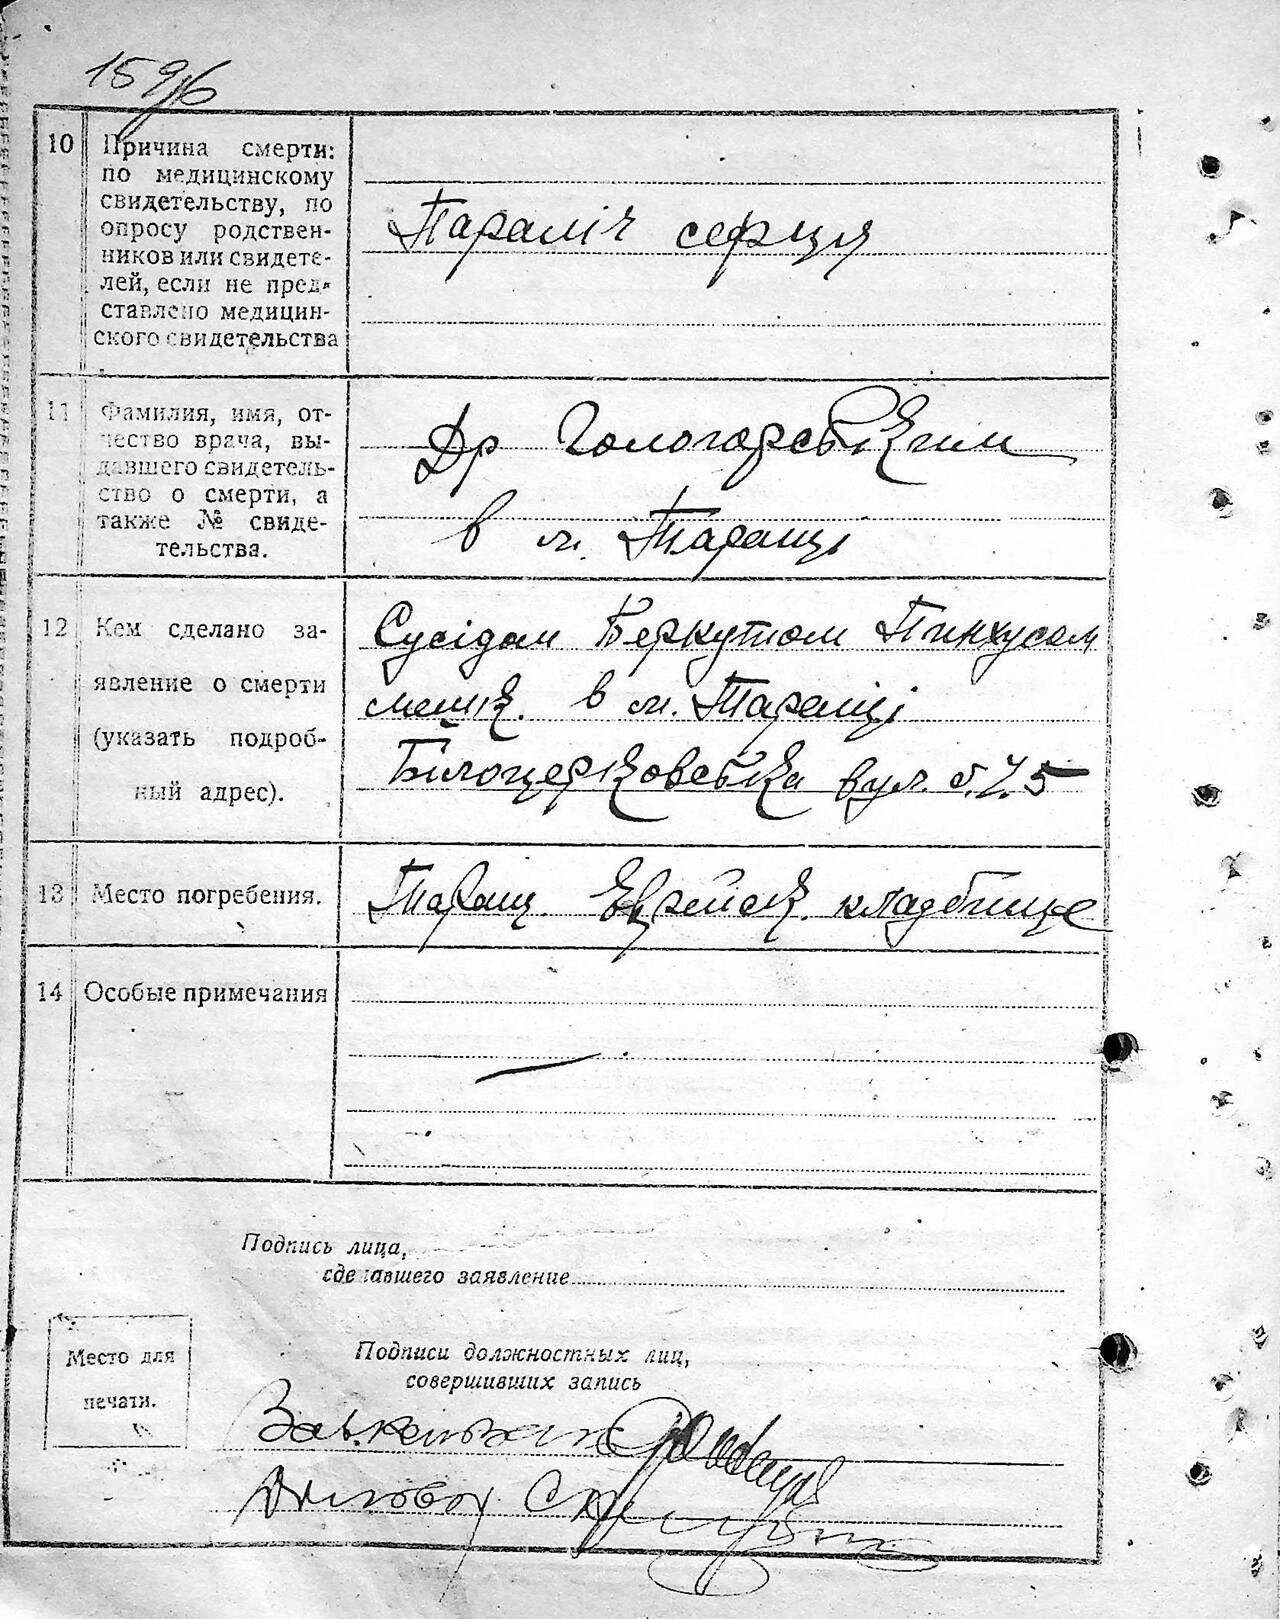 159б
10
Причина смерти:
по медицинскому
свидетельству, по
опросу родствен-
ников или свидете-
лей, если не пред-
ставлено медицин-
ского свидетельства
Параліч серця
11
Фамилия, имя, от-
чество врача, вы-
давшего свидетель-
ство о смерти, а
также № свиде-
тельства.
Др Гологорським
в м. Таращі
12
Кем сделано за-
явление о смерти
(указать подроб-
ный адрес).
Сусідом Беркутом Пинхусом
мешк. в м. Таращі
Білоцерковська вул. б. Ч. 5
13
Место погребения.
Таращ. Еврейск. кладбище
14
Особые примечания
—
Подпись лица,
сделавшего заявление
Место для
печати.
Подписи должностных лиц,
совершивших запись
Діловод